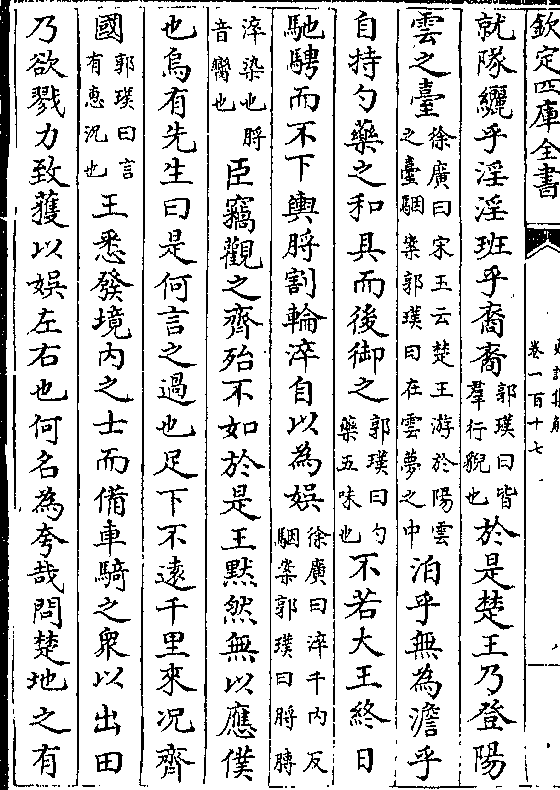 欽定四庫全書
卷一百十七
就隊纚乎淫淫班乎裔裔郭璞曰皆羣行貎也於是楚王乃登陽
雲之臺徐廣曰宋玉云楚王游於陽雲之臺駰案郭璞曰在雲夢之中泊乎無為澹乎
自持勺藥之和具而後御之郭璞曰勺藥五味也不若大王終日
馳騁而不下輿脟割輪淬自以為娛徐廣曰淬千内反駰案郭璞曰脟膊
淬染也脟音臠也臣竊觀之齊殆不如於是王黙然無以應僕
也烏有先生曰是何言之過也足下不逺千里來况齊
國郭璞曰言有惠况也王悉發境内之士而備車騎之衆以出田
乃欲戮力致獲以娛左右也何名為夸哉問楚地之有